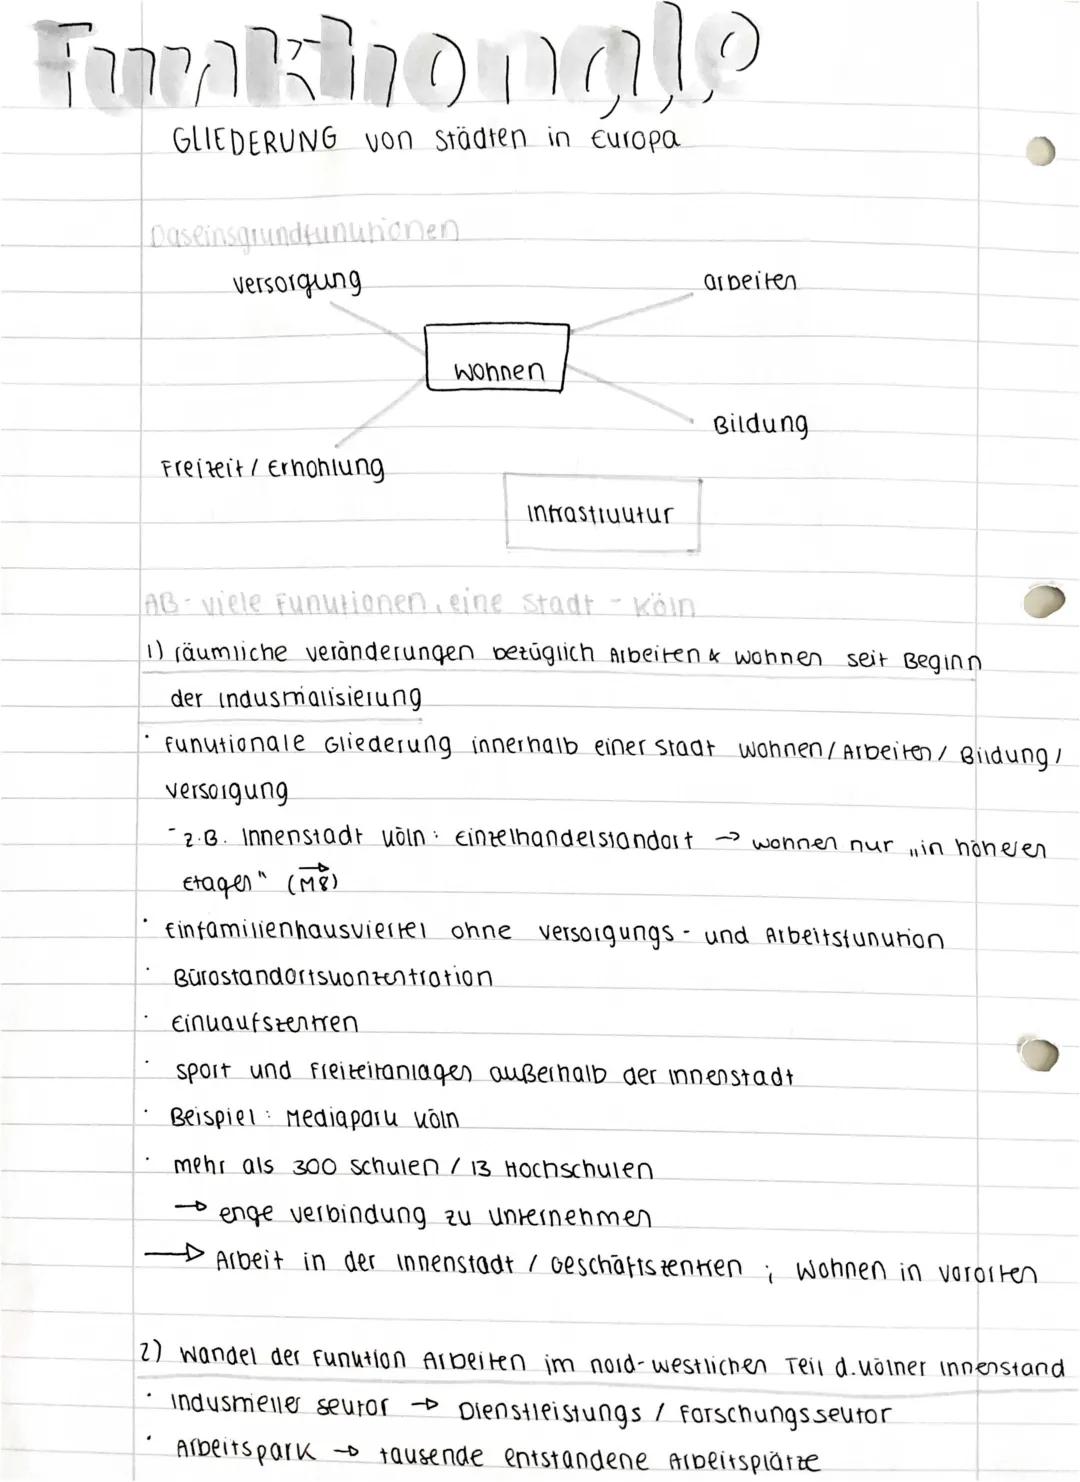 Funktionale
GLIEDERUNG von Städten in Europa
Daseinsgrundfunktionen
Versorgung
arbeiten
wohnen
Bildung
Freizeit / Erhohlung
Infrastruktur
AB - viele Funktionen, eine Stadt - Köln
1) räumliche veränderungen bezüglich Arbeiten & wohnen seit Beginn
der Industrialisierung
· Funktionale Gliederung innerhalb einer Stadt wohnen / Arbeiten / Bildung /
versorgung
- z.B. Innenstadt Köln: Einzelhandelsstandort → wohnen nur „in höheren
Etagen" (M8)
· Einfamilienhausviertel ohne versorgungs- und Arbeitsfunktion
· Bürostandortskonzentration
· Einkaufszentren
· sport und Freizeitanlagen außerhalb der innenstadt
· Beispiel: Mediapark Köln
· mehr als 300 schulen / 13 Hochschulen
→ enge verbindung zu unternehmen
→ Arbeit in der Innenstadt / Geschäftszentren ; Wohnen in vororten
2) Wandel der Funktion Arbeiten im nord-westlichen Teil d. Kölner Innenstand
· Industrieller sektor → Dienstleistungs / Forschungssektor
· Arbeitspark → tausende entstandene Arbeitsplätze